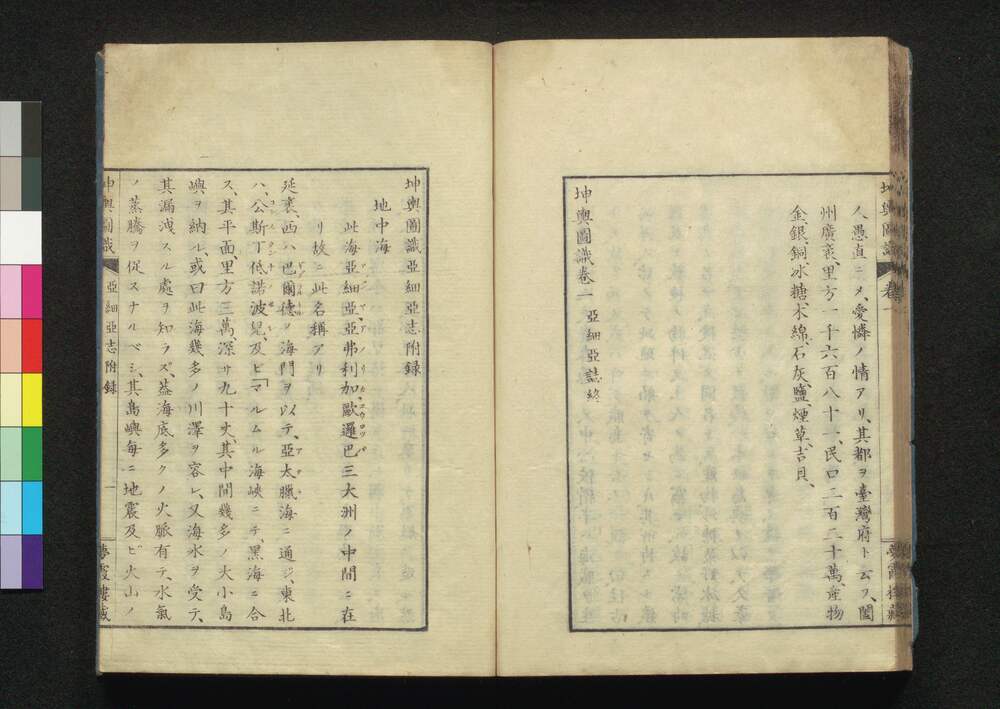 坤輿圖識
卷一
夢霞樓藏
人愚直ニメ、愛憐ノ情アリ、其都ヲ臺灣府ト云フ、闔
州廣袤里方一千六百八十一、民口二百二十萬、產物
金、銀、銅、冰糖、木綿、石灰、鹽、煙草、吉貝、
坤輿圖識卷一 亞細亞誌終
坤輿圖識亞細亞志附録
地中海
此海亞細亞亞弗利加歐邏巴三大洲ノ中間ニ在
リ故ニ此名稱アリ
延袤、西ハ巴爾德ノ海門ヲ以テ、亞太臘海ニ通ジ、東北
ハ、公斯丁低諾波兒、及ビ「マルムル海峽ニテ、黑海ニ合
ス、其平面、里方三萬、深サ九十丈、其中間幾多ノ大小島
嶼ヲ納ル、或曰此海幾多ノ川澤ヲ容レ、又海水ヲ受テ、
其漏洩スル處ヲ知ラズ、蓋海底多クノ火脈有テ、水氣
ノ蒸騰ヲ促スナルベシ、其島嶼每ニ地震及ビ火山ノ
坤輿圖識
亞細亞志附録
一
夢霞樓藏